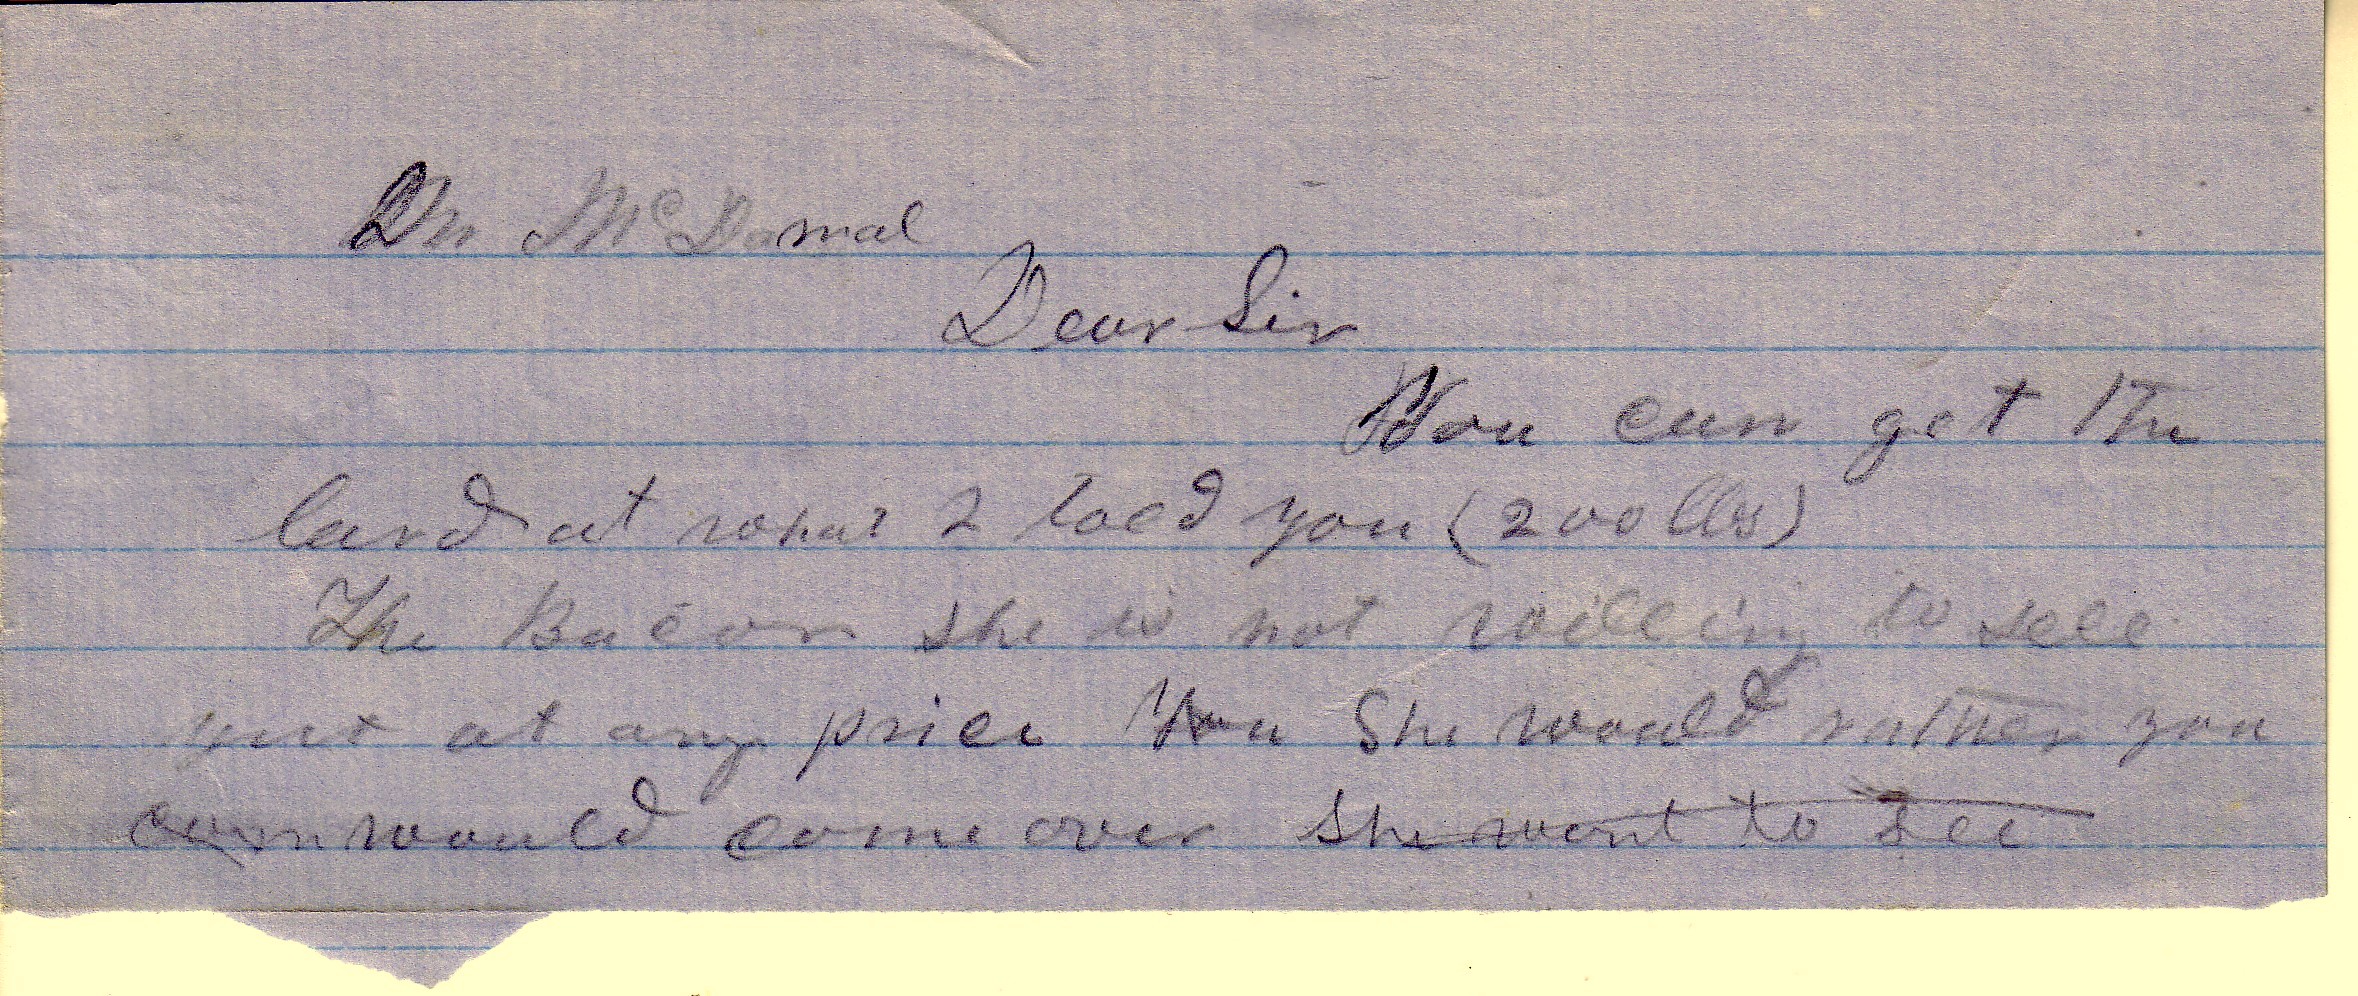 Mr McDamal
Dear Sir
You can get the
lard at what I told you (200 lbs)
The Bacon she is not willing to sell
yet at any price You She would rather you
would come over She want to see